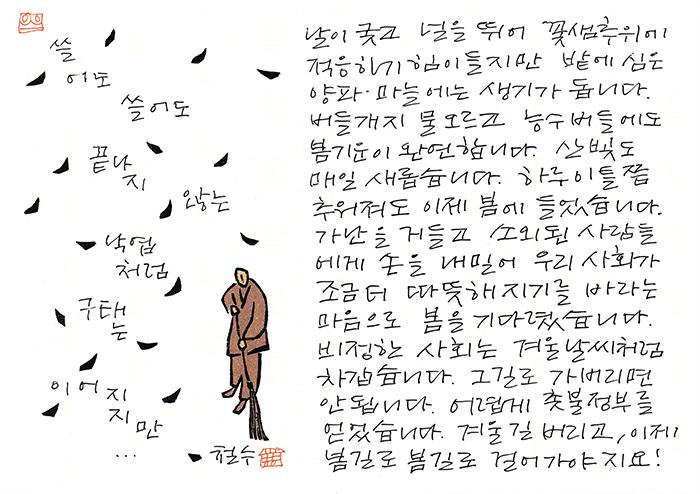 쓸
어도
쓸어도
끝나
지
않는
낙엽
처럼
구태
는
이어지
지만
...
철수
날이 궂고 널을 뛰어 꽃샘추위에
적응하기 힘이 들지만 밭에 심은
양파·마늘에는 생기가 돕니다.
버들개지 물오르고 능수버들에도
봄기운이 완연합니다. 산빛도
매일 새롭습니다. 하루이틀쯤
추워져도 이제 봄에 들었습니다.
가난을 거들고 소외된 사람들
에게 손을 내밀어 우리 사회가
조금 더 따뜻해지기를 바라는
마음으로 봄을 기다렸습니다.
비정한 사회는 겨울날씨처럼
차갑습니다. 그길로 가버리면
안됩니다. 어렵게 촛불정부를
얻었습니다. 겨울길 버리고, 이제
봄길로 봄길로 걸어가야지요!